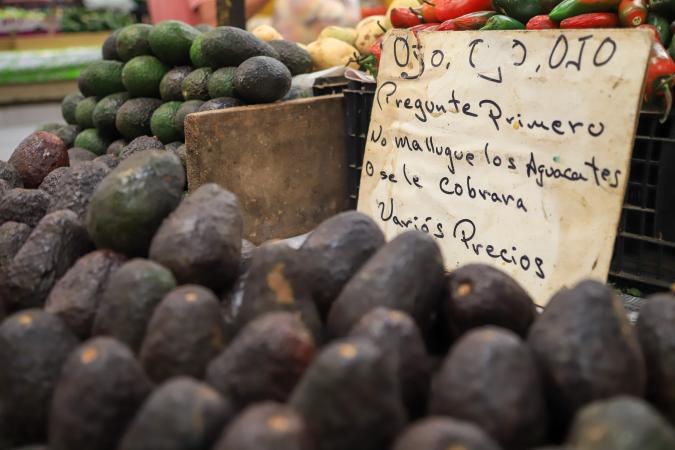 Ojo, Ojo, OJO
Pregunte Primero
No mallugue los Aguacates
O se le Cobrara
Variós Precios